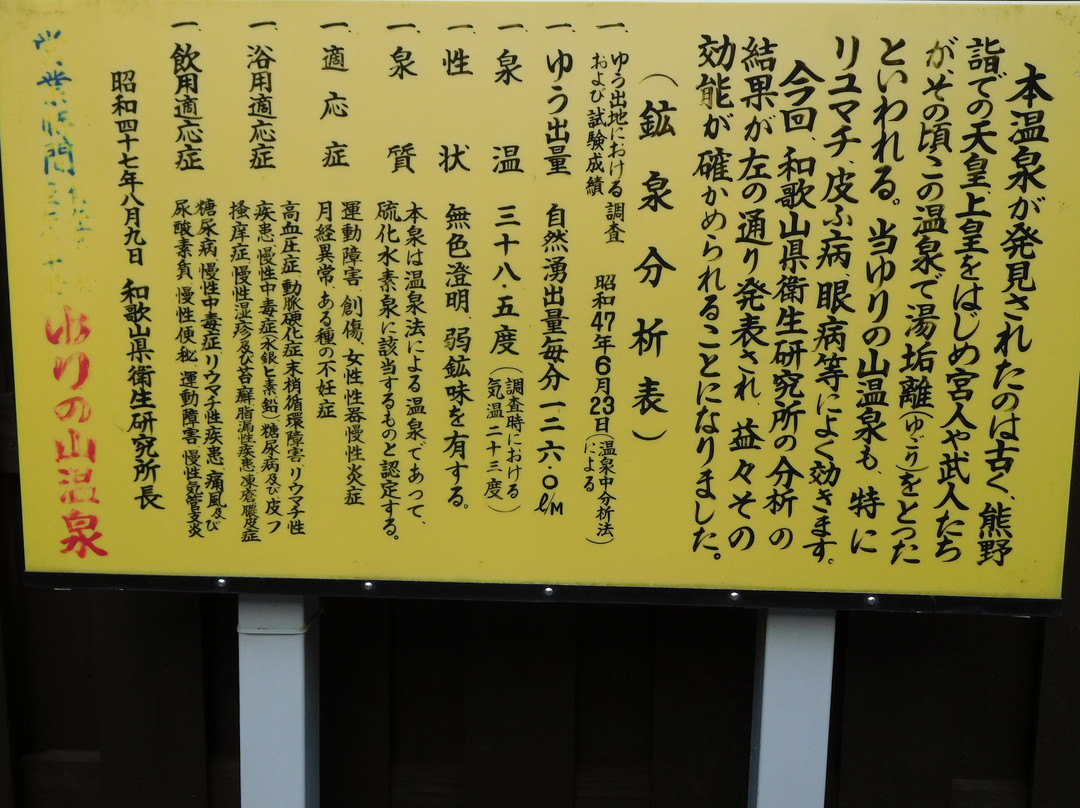 本温泉が発見されたのは古く、熊野
詣での天皇、上皇をはじめ宮人や武人たち
が、その頃この温泉で湯垢離(ゆごり)をとった
といわれる。当ゆりの山温泉も、特に
リュマチ、皮ふ病、眼病等によく効きます。
今回、和歌山県衛生研究所の分析の
結果が左の通り発表され、益々その
効能が確かめられることになりました。
(鉱泉分析表)
一、ゆう出地における調査
および試験成績
昭和47年6月23日(温泉中分析法)
による
一、ゆう出量 自然湧出量毎分一三六・〇ℓ/M
一、泉温 三十八・五度(調査時における
気温二十三度)
一、性状 無色澄明 弱鉱味を有する。
一、泉質 本泉は温泉法による温泉であって、
硫化水素泉に該当するものと認定する。
一、適応症 運動障害 創傷、女性性器慢性炎症
月経異常、ある種の不妊症
一、浴用適応症 高血圧症、動脈硬化症 末梢循環障害 リウマチ性
疾患 慢性中毒症(水銀ヒ素鉛) 糖尿病及び皮フ
掻痒症 慢性湿疹及び苔癬 脂漏性疾患 凍瘡 膿皮症
一、飲用適応症 糖尿病 慢性中毒症 リウマチ性疾患、痛風及び
尿酸素負 慢性便秘 運動障害 慢性気管支炎
昭和四十七年八月九日 和歌山県衛生研究所長
ゆりの山温泉